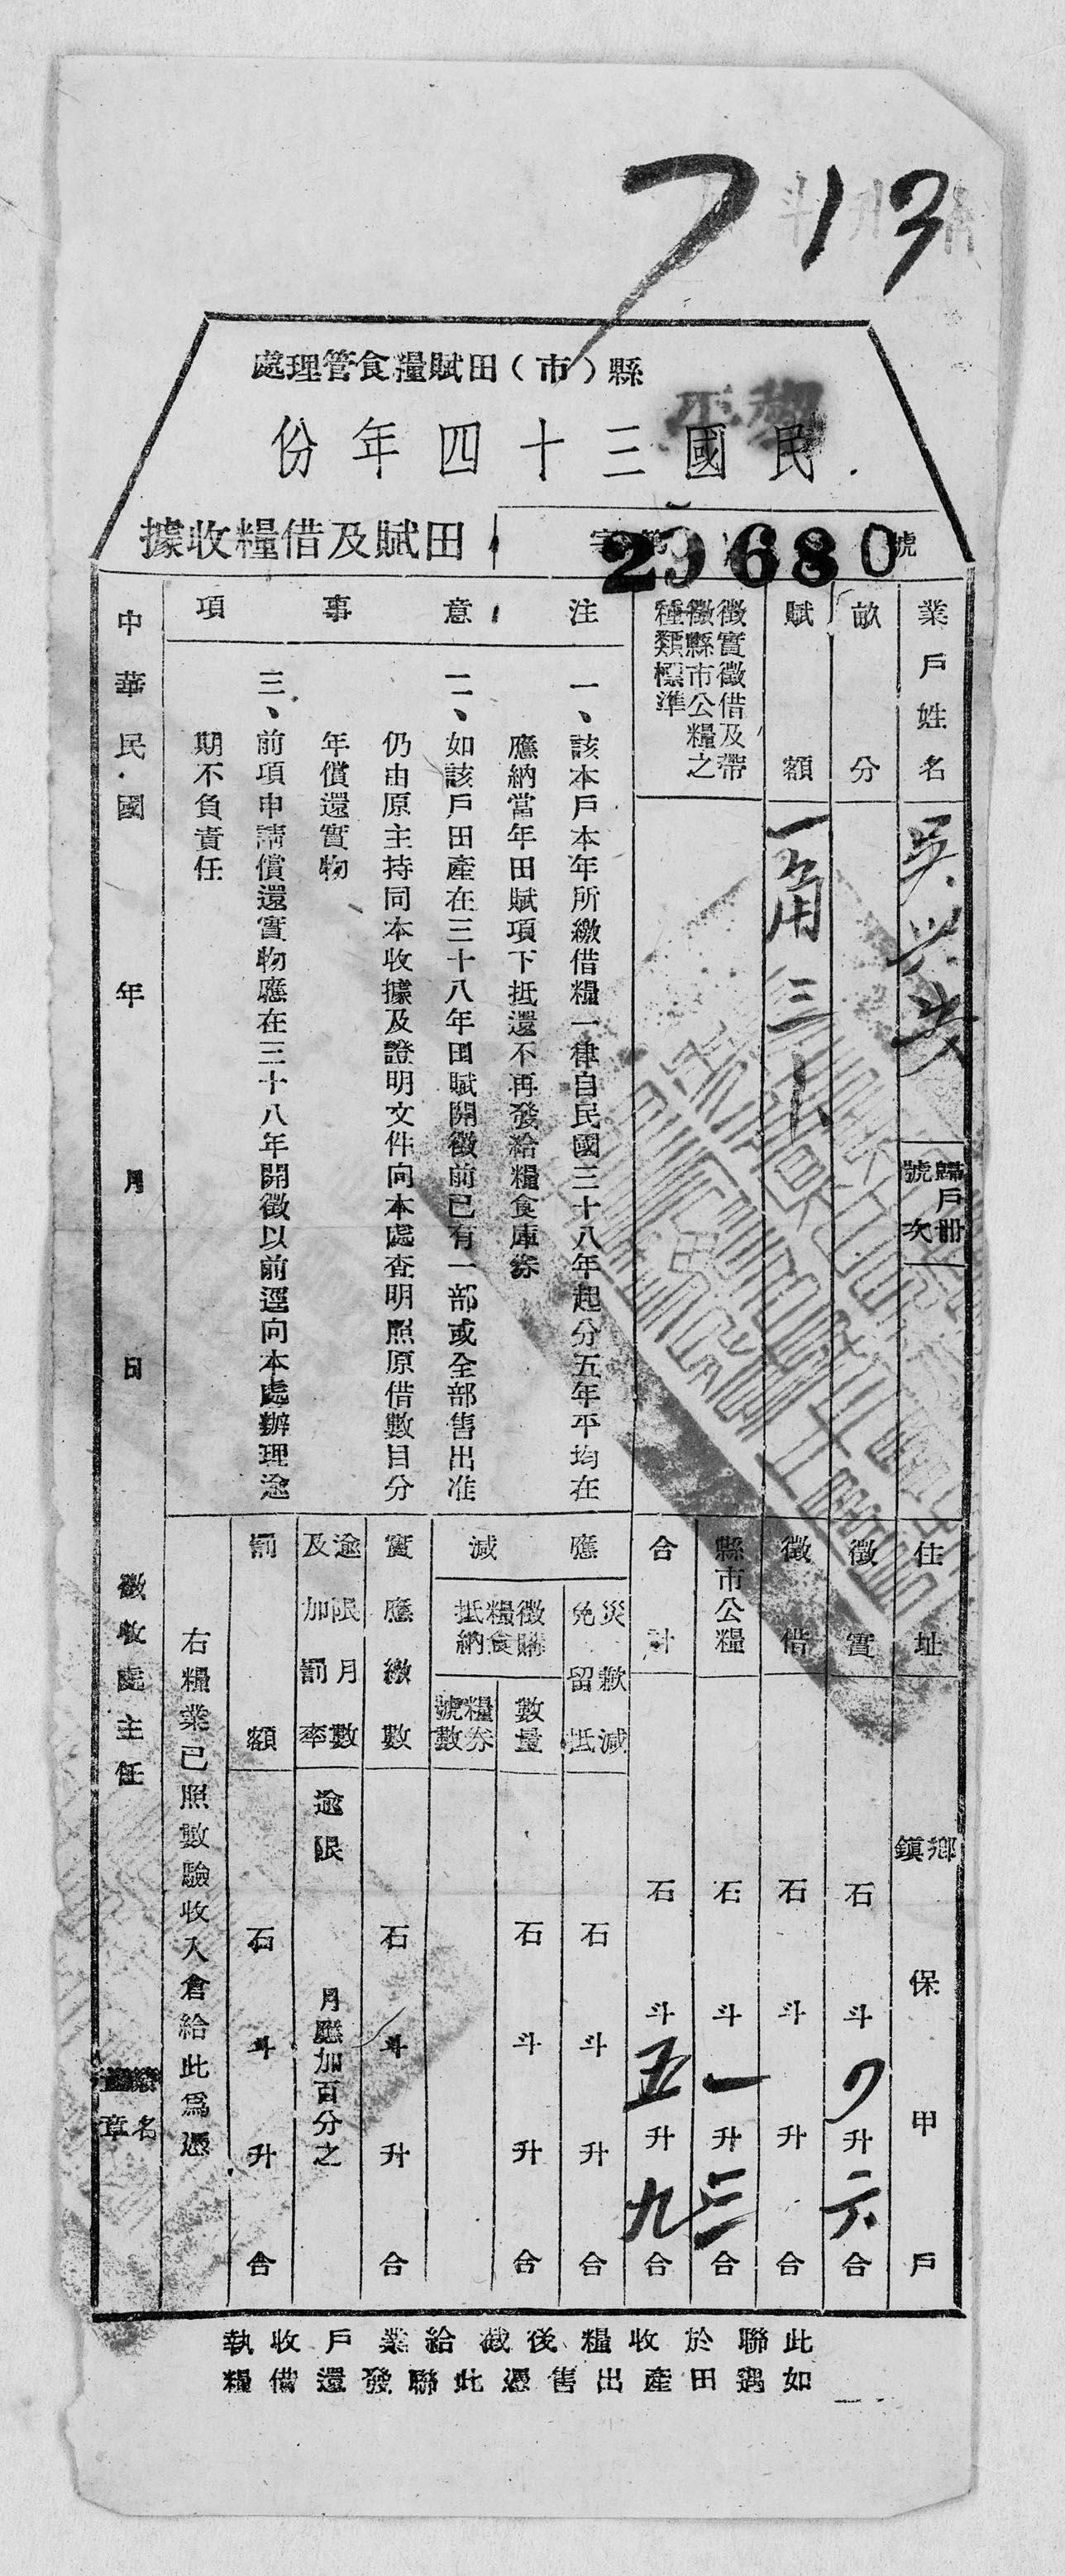 713
縣（市）田賦糧食管理處
民國三十四年份
田賦及借糧收據
字第29680號
業戶姓名
吳兴
歸戶冊
號次
住址
鄉鎮 保 甲 戶
畝分
賦額
一角三卜
徵實徵借及帶
徵縣市公糧之
種類標準
徵實 石 斗 升六合
徵借 石 斗 升 合
縣市公糧 石 斗一升三合
合計 石 斗五升九合
注意事項
一、該本戶本年所繳借糧一律自民國三十八年起分五年平均在
應納當年田賦項下抵還不再發給糧食庫券
二、如該戶田產在三十八年田賦開徵前已有一部或全部售出准
仍由原主持同本收據及證明文件向本處查明照原借數目分
年償還實物
三、前項申請償還實物應在三十八年開徵以前逕向本處辦理逾
期不負責任
應減
災歉減免留抵 石 斗 升 合
徵購糧食抵納
數量 石 斗 升 合
糧券號數
實應繳數 石 斗 升 合
逾限月數及加罰率
逾限 月應加百分之
罰額 石 斗 升 合
右糧業已照數驗收入倉給此為憑
中華民國 年 月 日
徵收處主任
名章
此聯於收糧後截給業戶收執
如遇田產出售憑此聯發還借糧